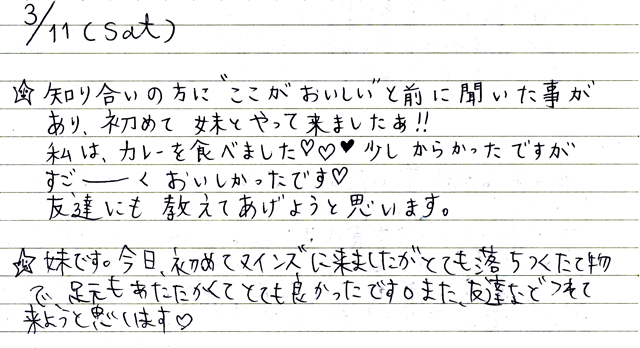 3/11(Sat)
☆知り合いの方に"ここがおいしい"と前に聞いた事が
あり、初めて 妹とやって来ましたぁ!!
私は、カレーを食べました♡♡♥少しからかったですが
すご――くおいしかったです♡
友達にも 教えてあげようと思います。
☆妹です。今日、初めてマインズに来ましたがとても落ちつくたて物
で、足元もあたたかくてとても良かったです。また、友達などつれて
来ようと思います♡